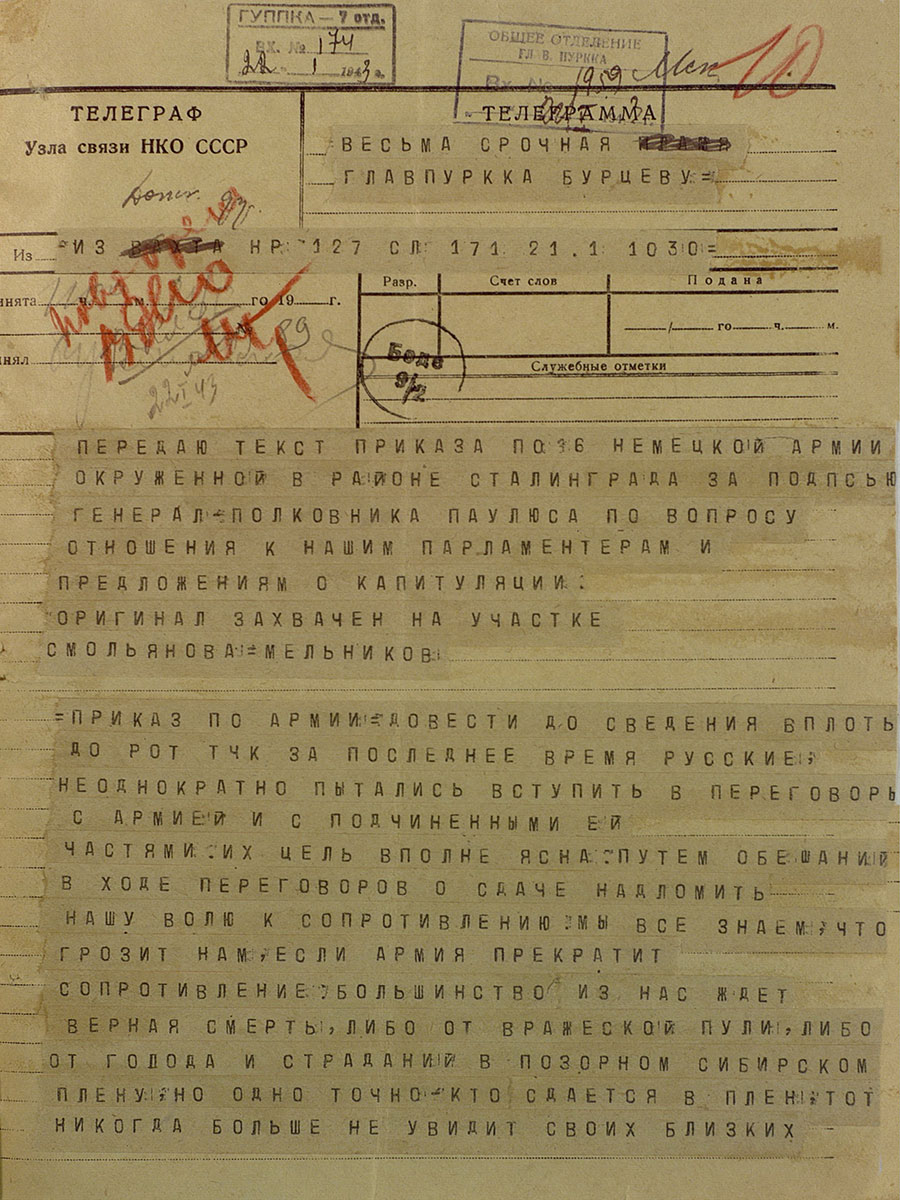 ГУППКА — 7 отд.
ВХ. № 174
22 1 1943 г.
ОБЩЕЕ ОТДЕЛЕНИЕ
ГЛ. В. ПУРККА
Вх. № 1959
10
ТЕЛЕГРАФ
Узла связи НКО СССР
ТЕЛЕГРАММА
ВЕСЬМА СРОЧНАЯ
ГЛАВПУРККА БУРЦЕВУ=
Из
=ИЗ ВАХТА НР 127 СЛ 171 21.1 1030=
инята ч. м. го 19 г.
нял
22 I 43
Разр. Счет слов Подана
/ го ч. м.
Служебные отметки
Бодо
9/2
ПЕРЕДАЮ ТЕКСТ ПРИКАЗА ПО 6 НЕМЕЦКОЙ АРМИИ
ОКРУЖЕННОЙ В РАЙОНЕ СТАЛИНГРАДА ЗА ПОДПСЬЮ
ГЕНЕРАЛ-ПОЛКОВНИКА ПАУЛЮСА ПО ВОПРОСУ
ОТНОШЕНИЯ К НАШИМ ПАРЛАМЕНТЕРАМ И
ПРЕДЛОЖЕНИЯМ О КАПИТУЛЯЦИИ.
ОРИГИНАЛ ЗАХВАЧЕН НА УЧАСТКЕ
СМОЛЬЯНОВА=МЕЛЬНИКОВ
=ПРИКАЗ ПО АРМИИ=ДОВЕСТИ ДО СВЕДЕНИЯ ВПЛОТЬ
ДО РОТ ТЧК ЗА ПОСЛЕДНЕЕ ВРЕМЯ РУССКИЕ,
НЕОДНОКРАТНО ПЫТАЛИСЬ ВСТУПИТЬ В ПЕРЕГОВОРЫ
С АРМИЕЙ И С ПОДЧИНЕННЫМИ ЕЙ
ЧАСТЯМИ.ИХ ЦЕЛЬ ВПОЛНЕ ЯСНА:ПУТЕМ ОБЕШАНИЙ
В ХОДЕ ПЕРЕГОВОРОВ О СДАЧЕ НАДЛОМИТЬ
НАШУ ВОЛЮ К СОПРОТИВЛЕНИЮ.МЫ ВСЕ ЗНАЕМ,ЧТО
ГРОЗИТ НАМ,ЕСЛИ АРМИЯ ПРЕКРАТИТ
СОПРОТИВЛЕНИЕ:БОЛЬШИНСТВО ИЗ НАС ЖДЕТ
ВЕРНАЯ СМЕРТЬ,ЛИБО ОТ ВРАЖЕСКОЙ ПУЛИ,ЛИБО
ОТ ГОЛОДА И СТРАДАНИЙ В ПОЗОРНОМ СИБИРСКОМ
ПЛЕНУ,НО ОДНО ТОЧНО-КТО СДАЕТСЯ В ПЛЕН,ТОТ
НИКОГДА БОЛЬШЕ НЕ УВИДИТ СВОИХ БЛИЗКИХ